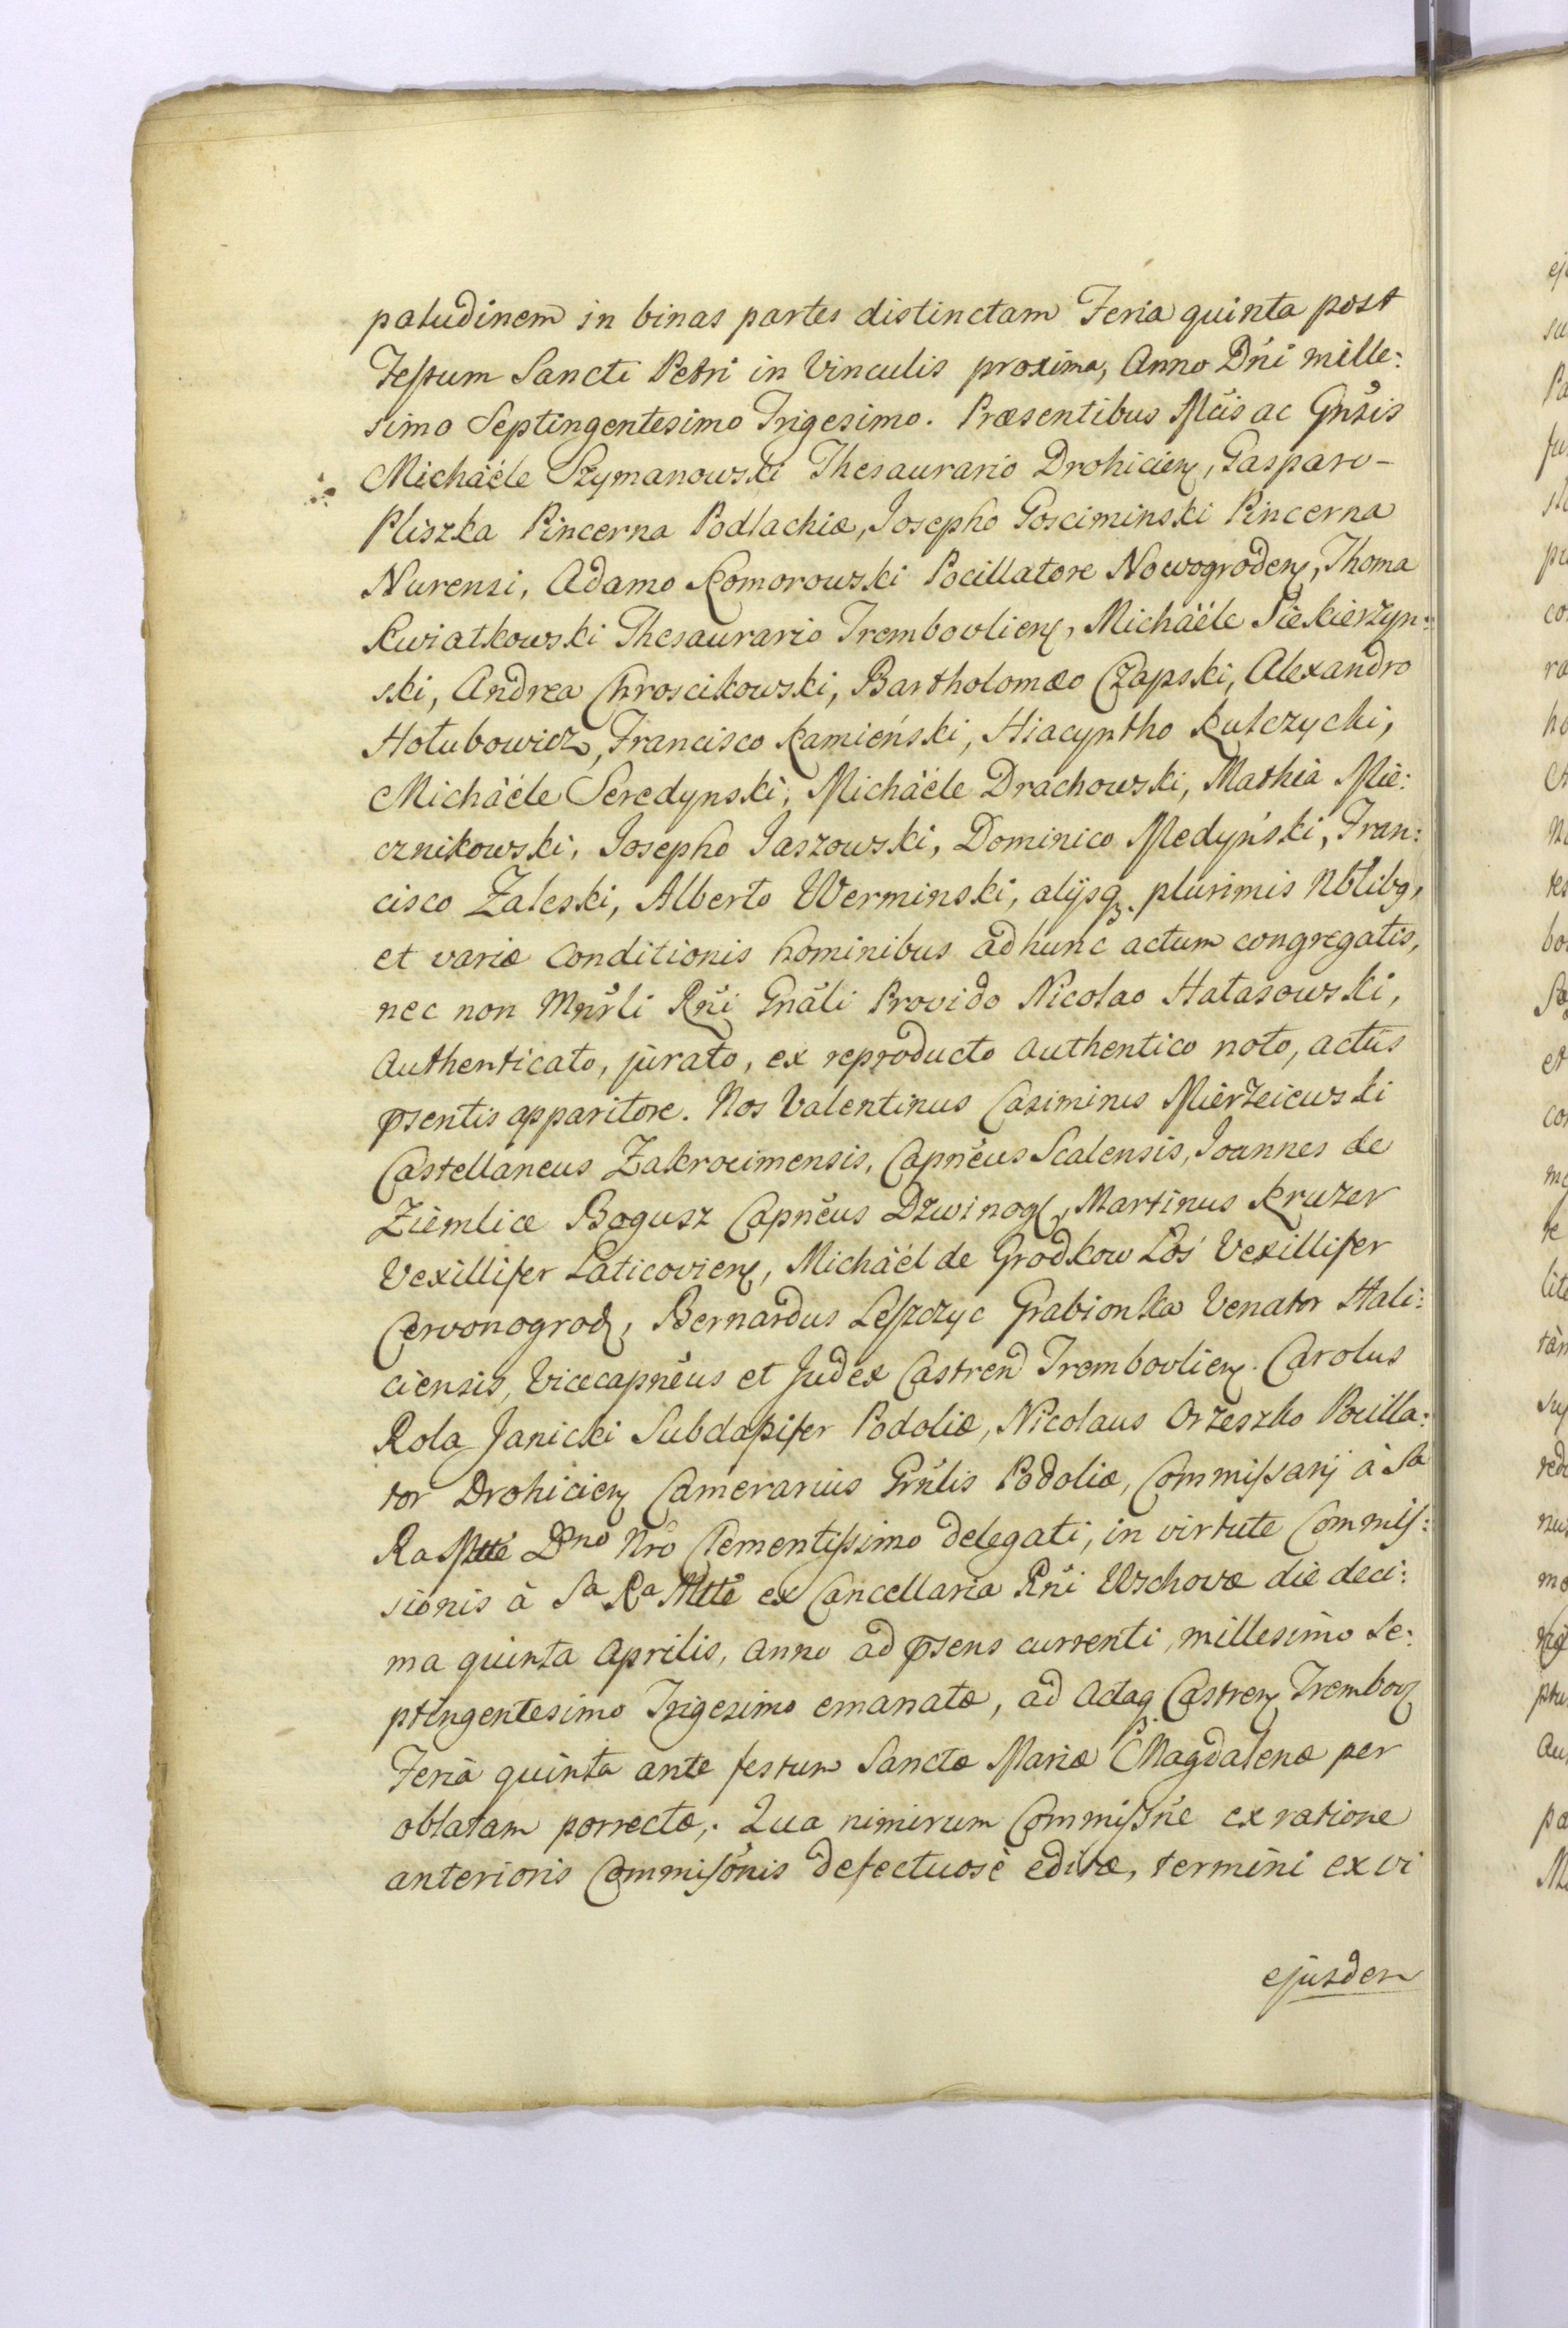 paludinem in binas partes distinctam Feria quinta post
Festum Sancti Petri in Vinculis proxima, Anno Dni mille:
simo Septingentesimo Trigesimo. Præsentibus Mcis ac Gnsis
Michäéle Szymanowski Thesaurario Drohicien, Gasparo-
Pliszka Pincerna Podlachiæ, Josepho Gosciminski Pincerna
Nurensi, Adamo Komorowski Pocillatore Nowogroden, Thoma
Kwiatkowski Thesaurario Trembovlien, Michäéle Siekierzyn:
ski, Andrea Chroscikowski, Bartholomæo Czapski, Alexandro
Hołubowicz, Francisco Kamieński, Hiacyntho Kulczycki,
Michäéle Seredynski, Michäéle Drachowski, Mathia Mie:
cznikowski, Josepho Jaszowski, Dominico Medyński, Fran:
cisco Zaleski, Alberto Werminski, alijsq. plurimis Nbłibq,
et variæ Conditionis hominibus ad hunc actum congregatis,
nec non Mnrli Rni Gnali Provido Nicolao Hałasowski,
Authenticato, jurato, ex reproducto authentico noto, actus
psentis apparitore. Nos Valentinus Casimirus Mierzeiewski
Castellaneus Zakrocimensis, Capneus Scalensis, Joannes de
Ziemlice Bogusz Capneus Dzwinog, Martinus Kruzer
Vexillifer Laticovien, Michäél de Grodkow Łoś Vexillifer
Czervonogrod, Bernardus Leszczyc Grabionka Venator Hali:
ciensis, Vicecapneus et Judex Castren Trembovlien. Carolus
Rola Janicki Subdapifer Podoliæ, Nicolaus Orzeszko Pocilla:
tor Drohicien Camerarius Grnlis Podoliæ, Commissarij à Sa
Ra Mtte Dno Nro Clementissimo delegati, in virtute Commis:
sionis à Sa Ra Mtte ex Cancellaria Rni Wschovæ die deci:
ma quinta Aprilis, anno ad psens currenti, millesimo Se:
ptingentesimo Trigesimo emanatæ, ad Actaq Castren Trembov
Feria quinta ante festum Sanctæ Mariæ Magdalenæ per
oblatam porrectæ,. Qua nimirum Commissne ex ratione
anterioris Commissonis defectuosè editæ, termini ex vi
ejusdem